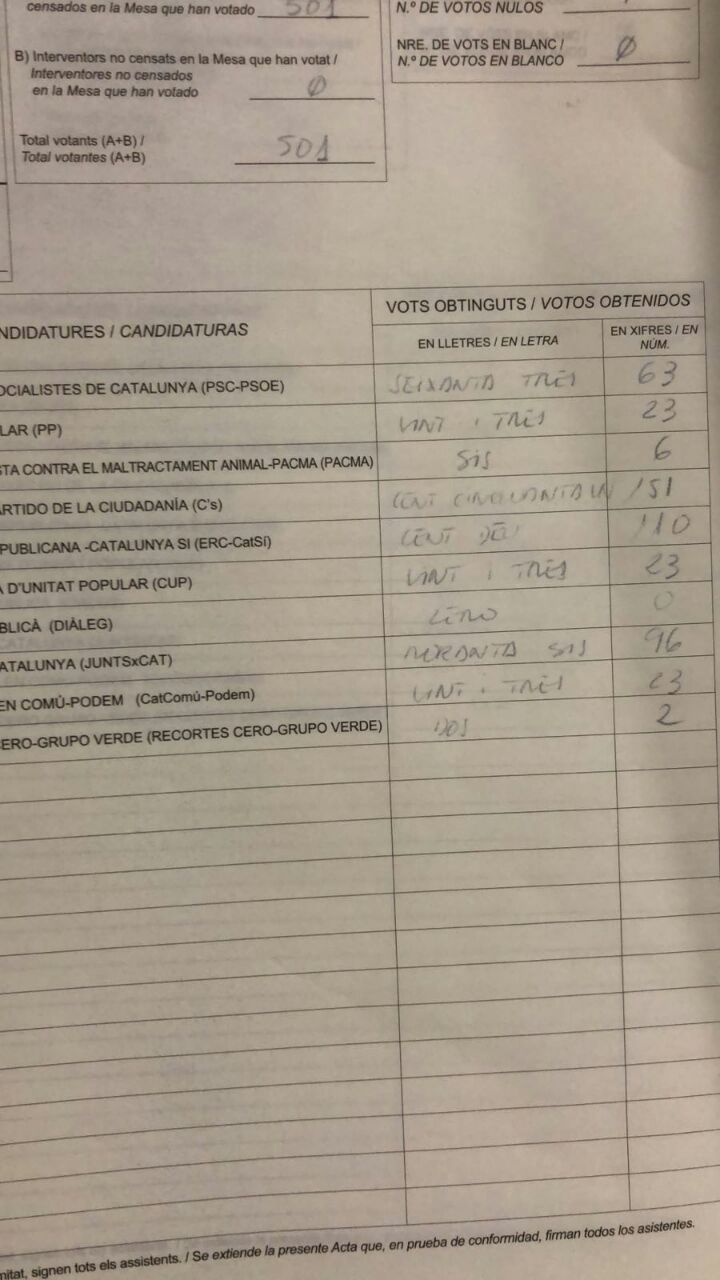 censados en la Mesa que han votado 501
N.º DE VOTOS NULOS
B) Interventors no censats en la Mesa que han votat /
Interventores no censados
en la Mesa que han votado Ø
NRE. DE VOTS EN BLANC /
N.º DE VOTOS EN BLANCO Ø
Total votants (A+B) /
Total votantes (A+B) 501
NDIDATURES / CANDIDATURAS
VOTS OBTINGUTS / VOTOS OBTENIDOS
EN LLETRES / EN LETRA
EN XIFRES / EN
NÚM.
OCIALISTES DE CATALUNYA (PSC-PSOE) SEIXANTA TRES 63
LAR (PP) VINT I TRES 23
STA CONTRA EL MALTRACTAMENT ANIMAL-PACMA (PACMA) SIS 6
ARTIDO DE LA CIUDADANÍA (C's) CENT CINQUANTA UN 151
PUBLICANA -CATALUNYA SI (ERC-CatSí) CENT DEU 110
A D'UNITAT POPULAR (CUP) VINT I TRES 23
BLICÀ (DIÀLEG) ZERO 0
ATALUNYA (JUNTSxCAT) NORANTA SIS 96
EN COMÚ-PODEM (CatComú-Podem) VINT I TRES 23
CERO-GRUPO VERDE (RECORTES CERO-GRUPO VERDE) DOS 2
mitat, signen tots els assistents. / Se extiende la presente Acta que, en prueba de conformidad, firman todos los asistentes.